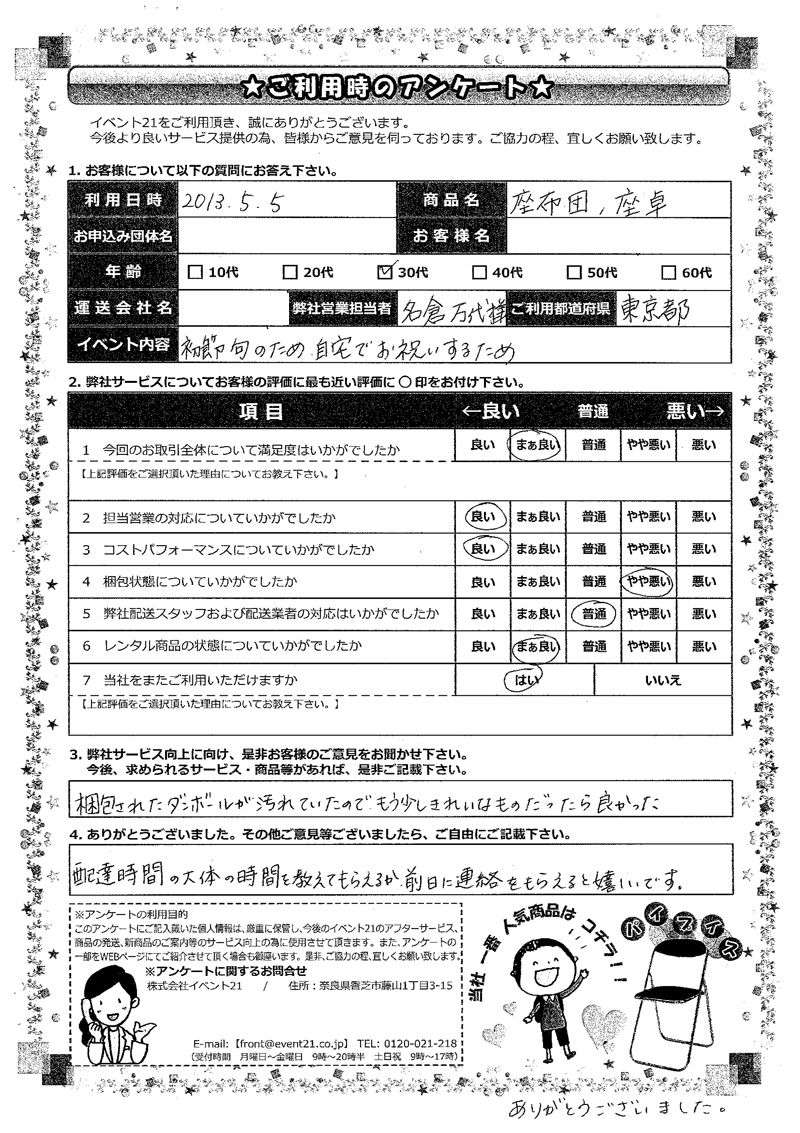 ★ご利用時のアンケート★
イベント21をご利用頂き、誠にありがとうございます。
今後より良いサービス提供の為、皆様からご意見を伺っております。ご協力の程、宜しくお願い致します。
1. お客様について以下の質問にお答え下さい。
利用日時 2013.5.5 商品名 座布団，座卓
お申込み団体名 お客様名
年齢 □10代 □20代 ☑30代 □40代 □50代 □60代
運送会社名 弊社営業担当者 名倉万代様 ご利用都道府県 東京都
イベント内容 初節句のため 自宅でお祝いするため
2. 弊社サービスについてお客様の評価に最も近い評価に ○ 印をお付け下さい。
項目 ←良い 普通 悪い→
1 今回のお取引全体について満足度はいかがでしたか 良い まぁ良い 普通 やや悪い 悪い
【上記評価をご選択頂いた理由についてお教え下さい。】
2 担当営業の対応についていかがでしたか 良い まぁ良い 普通 やや悪い 悪い
3 コストパフォーマンスについていかがでしたか 良い まぁ良い 普通 やや悪い 悪い
4 梱包状態についていかがでしたか 良い まぁ良い 普通 やや悪い 悪い
5 弊社配送スタッフおよび配送業者の対応はいかがでしたか 良い まぁ良い 普通 やや悪い 悪い
6 レンタル商品の状態についていかがでしたか 良い まぁ良い 普通 やや悪い 悪い
7 当社をまたご利用いただけますか はい いいえ
【上記評価をご選択頂いた理由についてお教え下さい。】
3. 弊社サービス向上に向け、是非お客様のご意見をお聞かせ下さい。
今後、求められるサービス・商品等があれば、是非ご記載下さい。
梱包されたダンボールが汚れていたのでもう少しきれいなものだったら良かった
4. ありがとうございました。その他ご意見等ございましたら、ご自由にご記載下さい。
配達時間の大体の時間を教えてもらえるか 前日に連絡をもらえると嬉しいです。
※アンケートの利用目的
このアンケートにご記入戴いた個人情報は、厳重に保管し、今後のイベント21のアフターサービス、
商品の発送、新商品のご案内等のサービス向上の為に使用させて頂きます。また、アンケートの
一部をWEBページにてご紹介させて頂く場合も御座います。是非、ご協力の程、宜しくお願い致します。
※アンケートに関するお問合せ
株式会社イベント21 / 住所：奈良県香芝市藤山1丁目3-15
E-mail:【front@event21.co.jp】 TEL: 0120-021-218
（受付時間 月曜日～金曜日 9時～20時半 土日祝 9時～17時）
当社一番人気商品はコチラ！！
パイプイス
ありがとうございました。